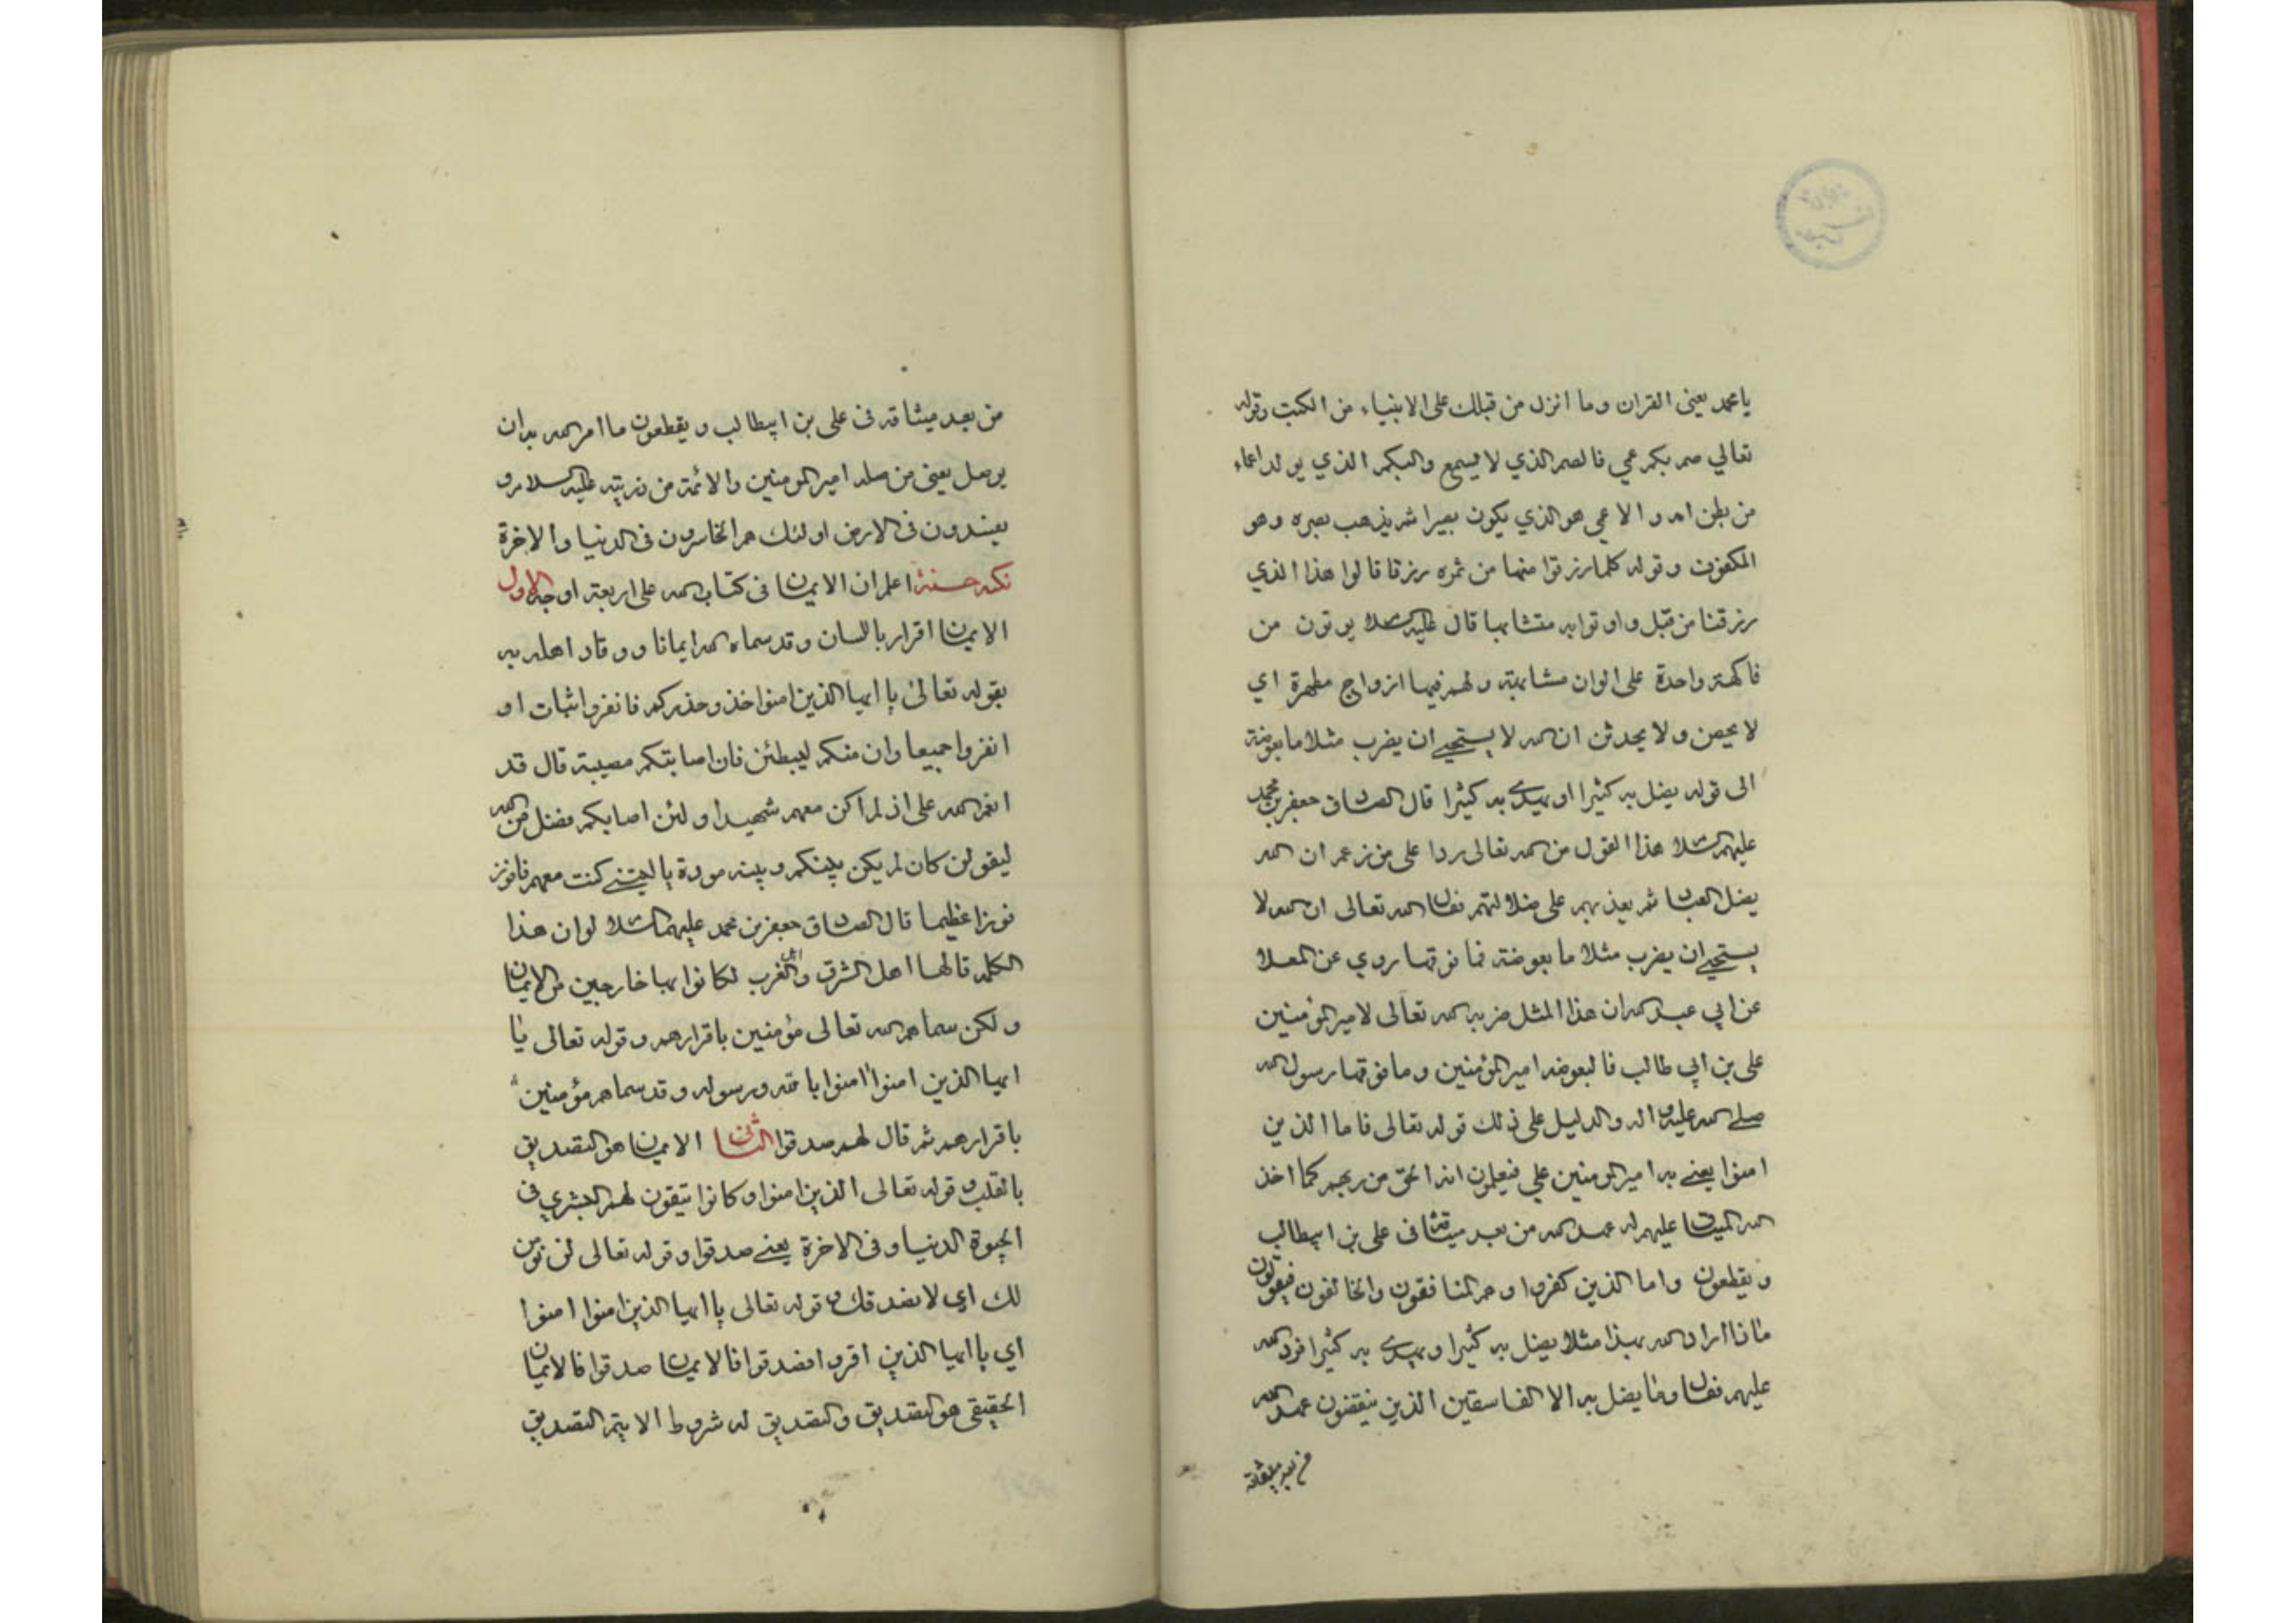 يا محمد يعنى القران وما انزل من قبلك على الانبياء من الكتب وقوله
تعالي صم بكم عمي فالصم الذي لا يسمع والبكم الذي يولد اعماء
من بطن امه والاعمي هو الذي يكون بصيرا ثم يذهب بصره وهو
المكفوف وقوله كلما رزقوا منها من ثمره رزقا قالوا هذا الذي
رزقنا من قبل واوتوا به متشابها قال عليه السلام يوتون من
فاكهة واحدة على الوان متشابهة ولهم فيها ازواج مطهرة اي
لا يحيضن ولا يحدثن ان الله لا يستحيے ان يضرب مثلا ما بعوضة
الى قوله يضل به كثيرا او يهدے به كثيرا قال الصادق جعفر بن محمد
عليهم السلام هذا القول من الله تعالى ردا على من زعم ان الله
يضل العباد ثم يعذبهم على ضلالتهم فقال الله تعالى ان الله لا
يستحيے ان يضرب مثلا ما بعوضة فما فوقها روي عن المعلا
عن ابي عبد الله ان هذا المثل ضربه الله تعالى لامير المؤمنين
على بن ابي طالب فالبعوضه امير المؤمنين وما فوقها رسول الله
صلے الله عليه واله والدليل على ذلك قوله تعالى فاما الذين
امنوا يعنے به امير المومنين علي فيعلمون انه الحق من ربهم كما اخذ
الله الميثاق عليهم له عهد الله من بعد ميثاقه فى على بن ابيطالب
ويقطعون واما الذين كفروا وهم المنافقون والمخالفون فيقولون
ماذا اراد الله بهذا مثلا يضل به كثيرا ويهدے به كثيرا فرد الله
عليهم فقال وما يضل به الا الفاسقين الذين ينقضون عهد الله
من بعد ميثاقه
من بعد ميثاقه فى على بن ابيطالب ويقطعون ما امر الله به ان
يوصل يعنى من صله امير المومنين والائمة من ذريته عليه السلام و
يفسدون فى الارض اولئك هم الخاسرون فى الدنيا والاخرة
نكته حسنة اعلم ان الايمان فى كتاب الله على اربعة اوجه الاول
الايمان اقرار باللسان وقد سماه الله ايمانا ووقاد اهله به
بقوله تعالىٰ يا ايها الذين امنوا خذوا حذركم فانفروا ثبات او
انفروا جميعا وان منكم ليبطئن فان اصابتكم مصيبة قال قد
انعم الله على اذ لم اكن معهم شهيدا ولئن اصابكم فضل من الله
ليقولن كان لم يكن بينكم وبينه مودة يا ليتنے كنت معهم فافوز
فوزا عظيما قال الصادق جعفر بن محمد عليهما السلام لو ان هذا
الكلمه قالها اهل الشرق واهل الغرب لكانوا بها خارجين من الايمان
ولكن سماهم الله تعالى مؤمنين باقرارهم وقوله تعالى يا
ايها الذين امنوا امنوا بالله ورسوله وقد سماهم مؤمنين
باقرارهم ثم قال لهم صدقوا الثانى الايمان هو التصديق
بالقلب وقوله تعالى الذين امنوا وكانوا يتقون لهم البشري فى
الحيوة الدنيا وفى الاخرة يعنے صدقوا وقوله تعالى لن نومن
لك اي لا نصدقك وقوله تعالى يا ايها الذين امنوا امنوا
اي يا ايها الذين اقروا فصدقوا فالايمان صدقوا فالايمان
الحقيقى هو التصديق والتصديق له شروط الا يتم التصديق